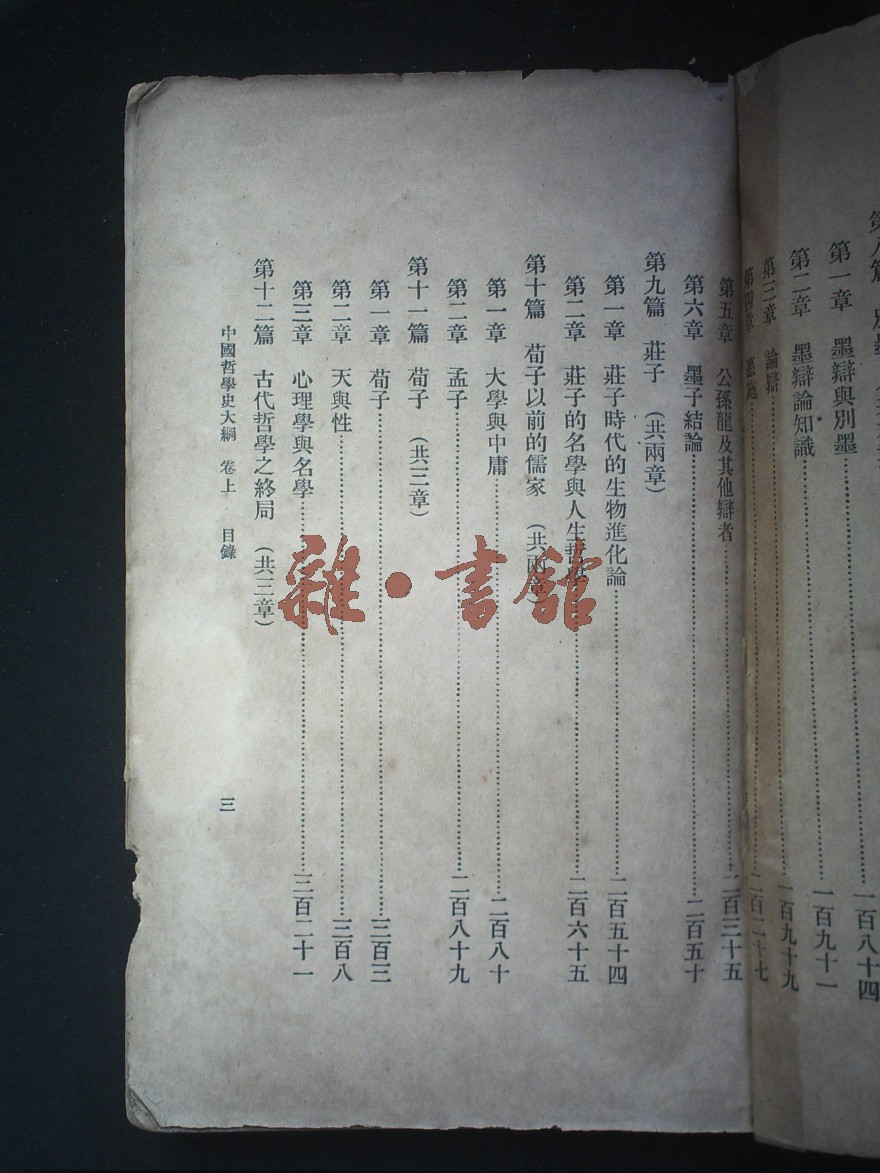 第一章　墨辯與別墨……一百八十四
第二章　墨辯論知識……一百九十一
第三章　論辯……一百九十九
第四章　惠施……二百二十七
第五章　公孫龍及其他辯者……二百三十五
第六章　墨子結論……二百五十
第九篇　莊子　（共兩章）
第一章　莊子時代的生物進化論……二百五十四
第二章　莊子的名學與人生哲學……二百六十五
第十篇　荀子以前的儒家　（共兩章）
第一章　大學與中庸……二百八十
第二章　孟子……二百八十九
第十一篇　荀子　（共三章）
第一章　荀子……三百三
第二章　天與性……三百八
第三章　心理學與名學……三百二十一
第十二篇　古代哲學之終局　（共三章）
中國哲學史大綱　卷上　目錄　三
雜·書館